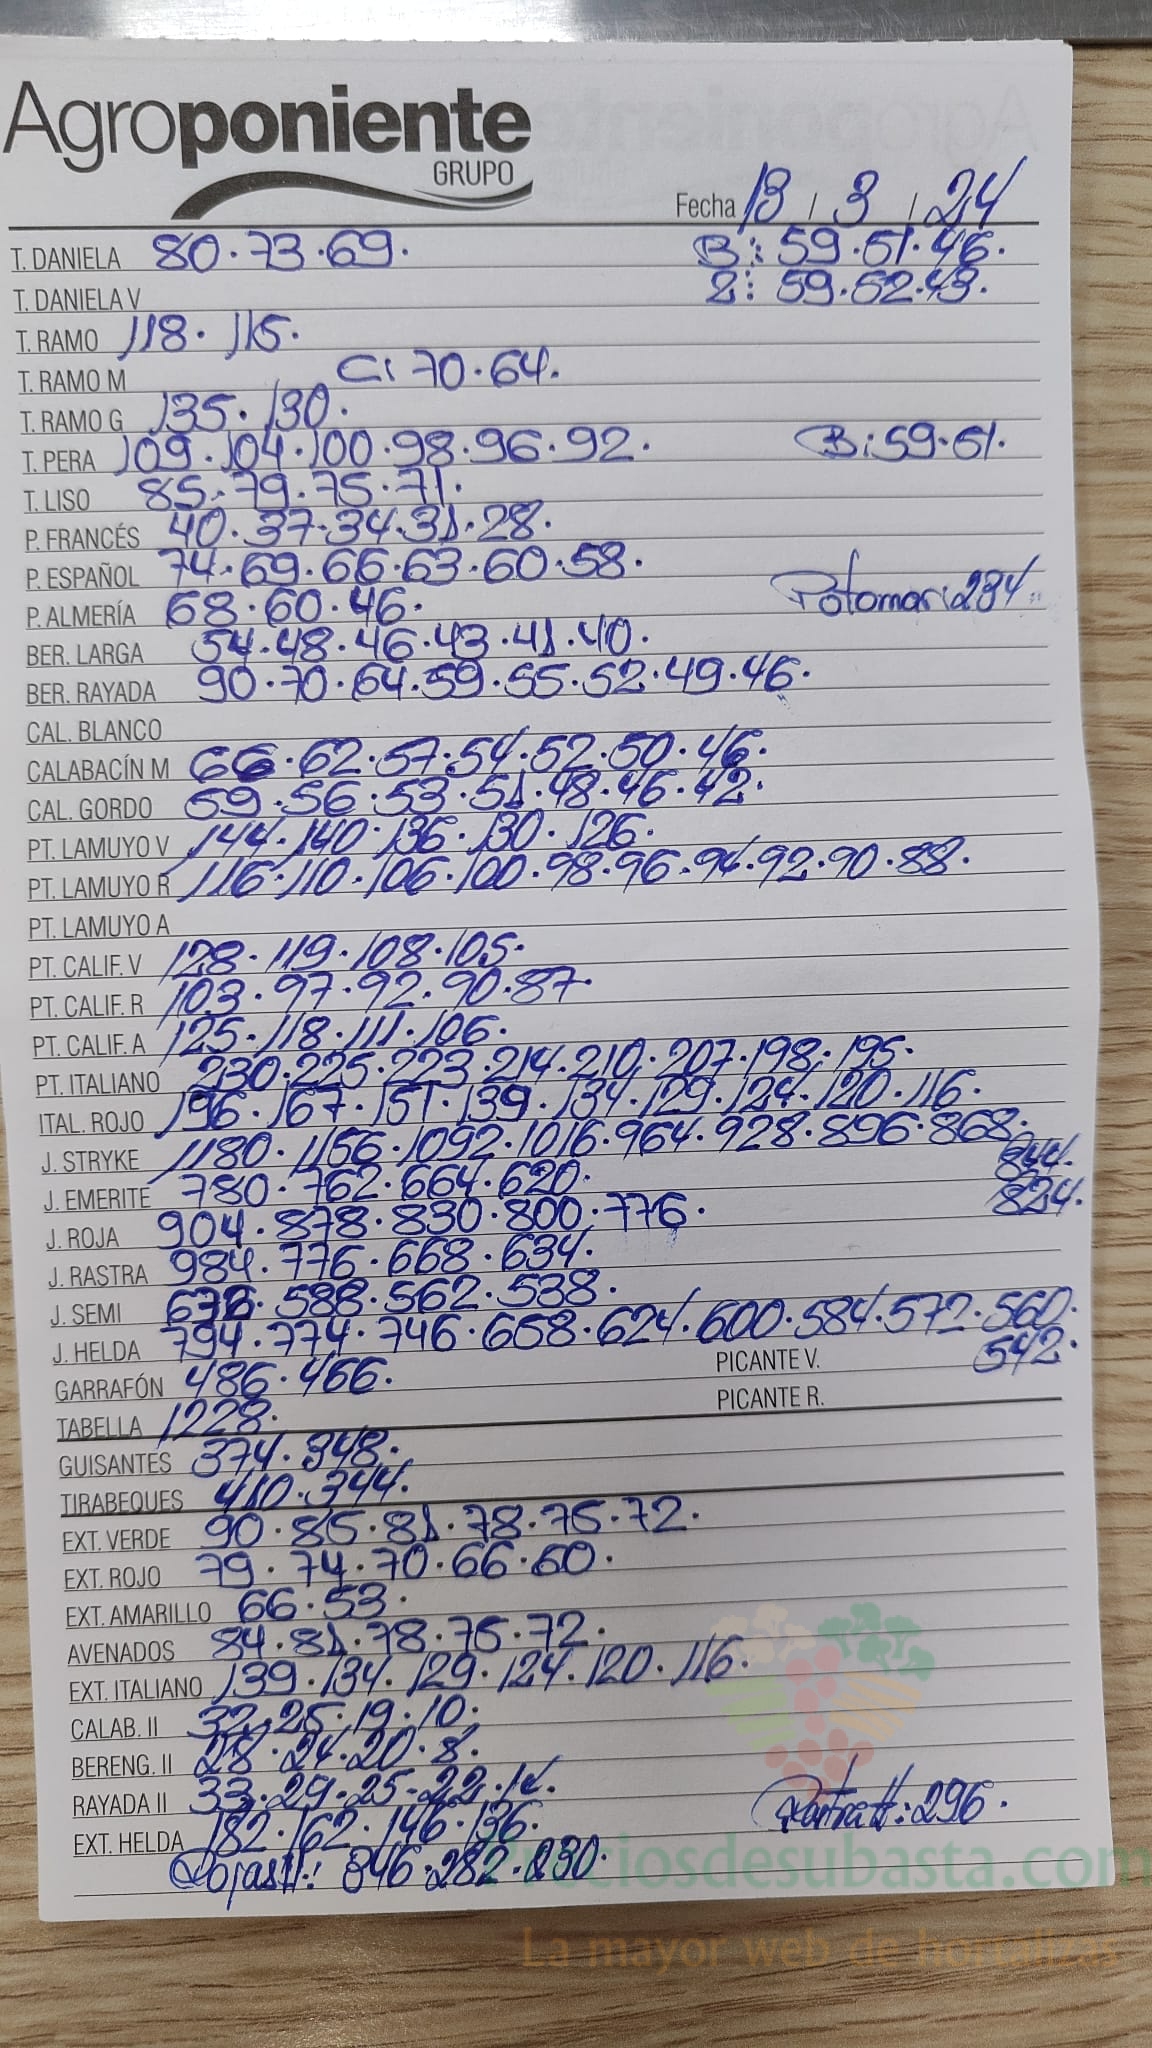 Agroponiente
GRUPO
Fecha 13 / 3 / 24
T. DANIELA 80.73.69. B: 59.51.46.
T. DANIELA V 2: 59.52.43.
T. RAMO 118. 115.
T. RAMO M C: 70.64.
T. RAMO G 135. 130.
T. PERA 109.104.100.98.96.92. B:59.51.
T. LISO 85.79.75.71.
P. FRANCÉS 40.37.34.31.28.
P. ESPAÑOL 74.69.66.63.60.58.
P. ALMERÍA 68.60.46. Potomar:234.
BER. LARGA 54.48.46.43.41.40.
BER. RAYADA 90.70.64.59.55.52.49.46.
CAL. BLANCO
CALABACÍN M 66.62.57.54.52.50.46.
CAL. GORDO 59.56.53.51.48.46.42.
PT. LAMUYO V 144.140.136.130.126.
PT. LAMUYO R 116.110.106.100.98.96.94.92.90.88.
PT. LAMUYO A
PT. CALIF. V 128.119.108.105.
PT. CALIF. R 103.97.92.90.87.
PT. CALIF. A 125.118.111.106.
PT. ITALIANO 230.225.223.214.210.207.198.195.
ITAL. ROJO 196.167.151.139.134.129.124.120.116.
J. STRYKE 1180.1156.1092.1016.964.928.896.868.
844.
J. EMERITE 780.762.664.620. 824.
J. ROJA 904.878.830.800.776.
J. RASTRA 984.776.668.634.
J. SEMI 588.562.538.
J. HELDA 794.774.746.658.624.600.584.572.560.
542.
GARRAFÓN 486.466. PICANTE V.
TABELLA 1228. PICANTE R.
GUISANTES 374.348.
TIRABEQUES 410.344.
EXT. VERDE 90.85.81.78.75.72.
EXT. ROJO 79.74.70.66.60.
EXT. AMARILLO 66.53.
AVENADOS 84.81.78.75.72.
EXT. ITALIANO 139.134.129.124.120.116.
CALAB. II 32.25.19.10.
BERENG. II 28.24.20.8.
RAYADA II 33.29.25.22.14.
EXT. HELDA 182.162.146.136. :296.
RojasII: 346.282.230.
preciosdesubasta.com
La mayor web de hortalizas